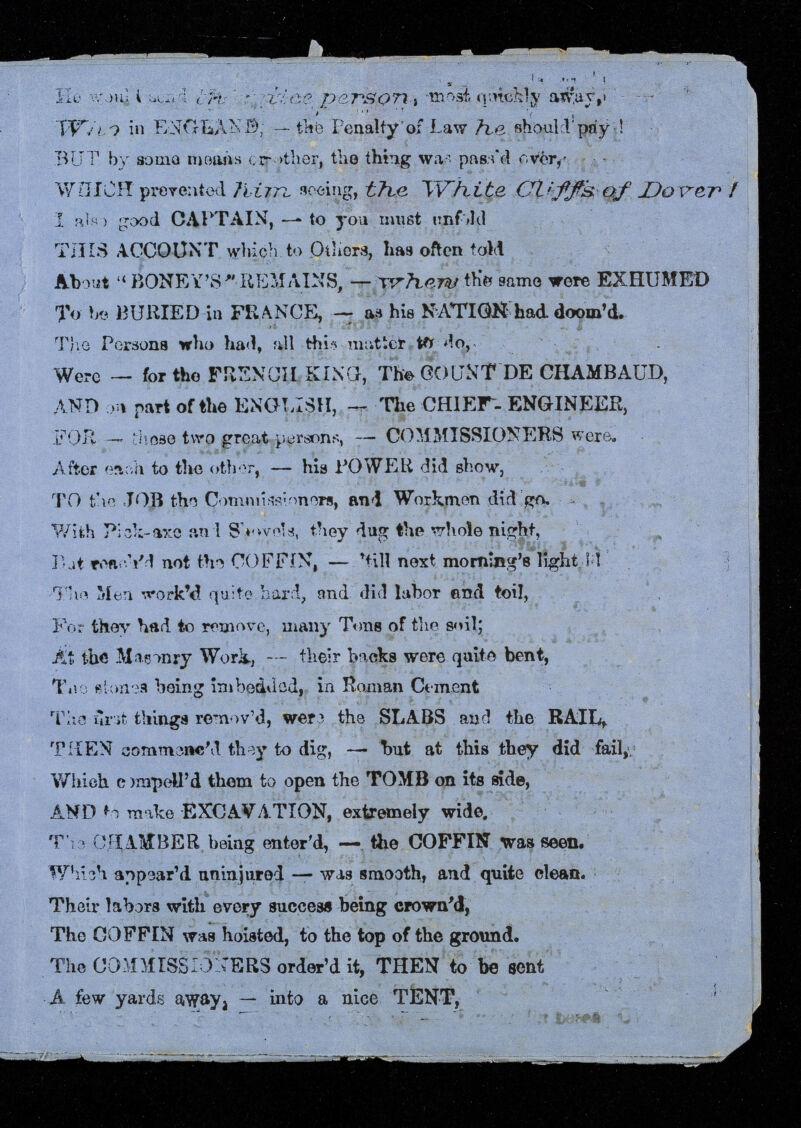 He would send the nice person, most quickly away,
Who in ENGLAND, — the Penalty of Law he should pay!
BUT by some means or other, the thing was pass'd over,
WHICH prevented him seeing, the White Cliffs of Dover!
I also good CAPTAIN, — to you must unfold
THIS ACCOUNT which to Others, has often told
About "BONEY'S" REMAINS, — when the same were EXHUMED
To be BURIED in FRANCE, — as his NATION had doom'd.
The Persons who had, all this matter to do,
Were — for the FRENCH KING, The COUNT DE CHAMBAUD,
AND on part of the ENGLISH, — The CHIEF-ENGINEER,
FOR — these two great persons, — COMMISSIONERS were.
After each to the other, — his POWER did show,
TO the JOB the Commissioners, and Workmen did go.
With Pick-axe and Shovels, they dug the whole night,
But reach'd not the COFFIN, — 'till next morning's light!!
The Men work'd quite hard, and did labor and toil,
For they had to remove, many Tons of the soil;
At the Masonry Work, — their backs were quite bent,
The stones being imbedded, in Roman Cement
The first things remov'd, were the SLABS and the RAIL,
THEN commenc'd they to dig, — but at this they did fail,
Which compell'd them to open the TOMB on its side,
AND to make EXCAVATION, extremely wide.
The CHAMBER being enter'd, — the COFFIN was seen.
Which appear'd uninjured — was smooth, and quite clean.
Their labors with every success being crown'd,
The COFFIN was hoisted, to the top of the ground.
The COMMISSIONERS order'd it, THEN to be sent
A few yards away, — into a nice TENT,